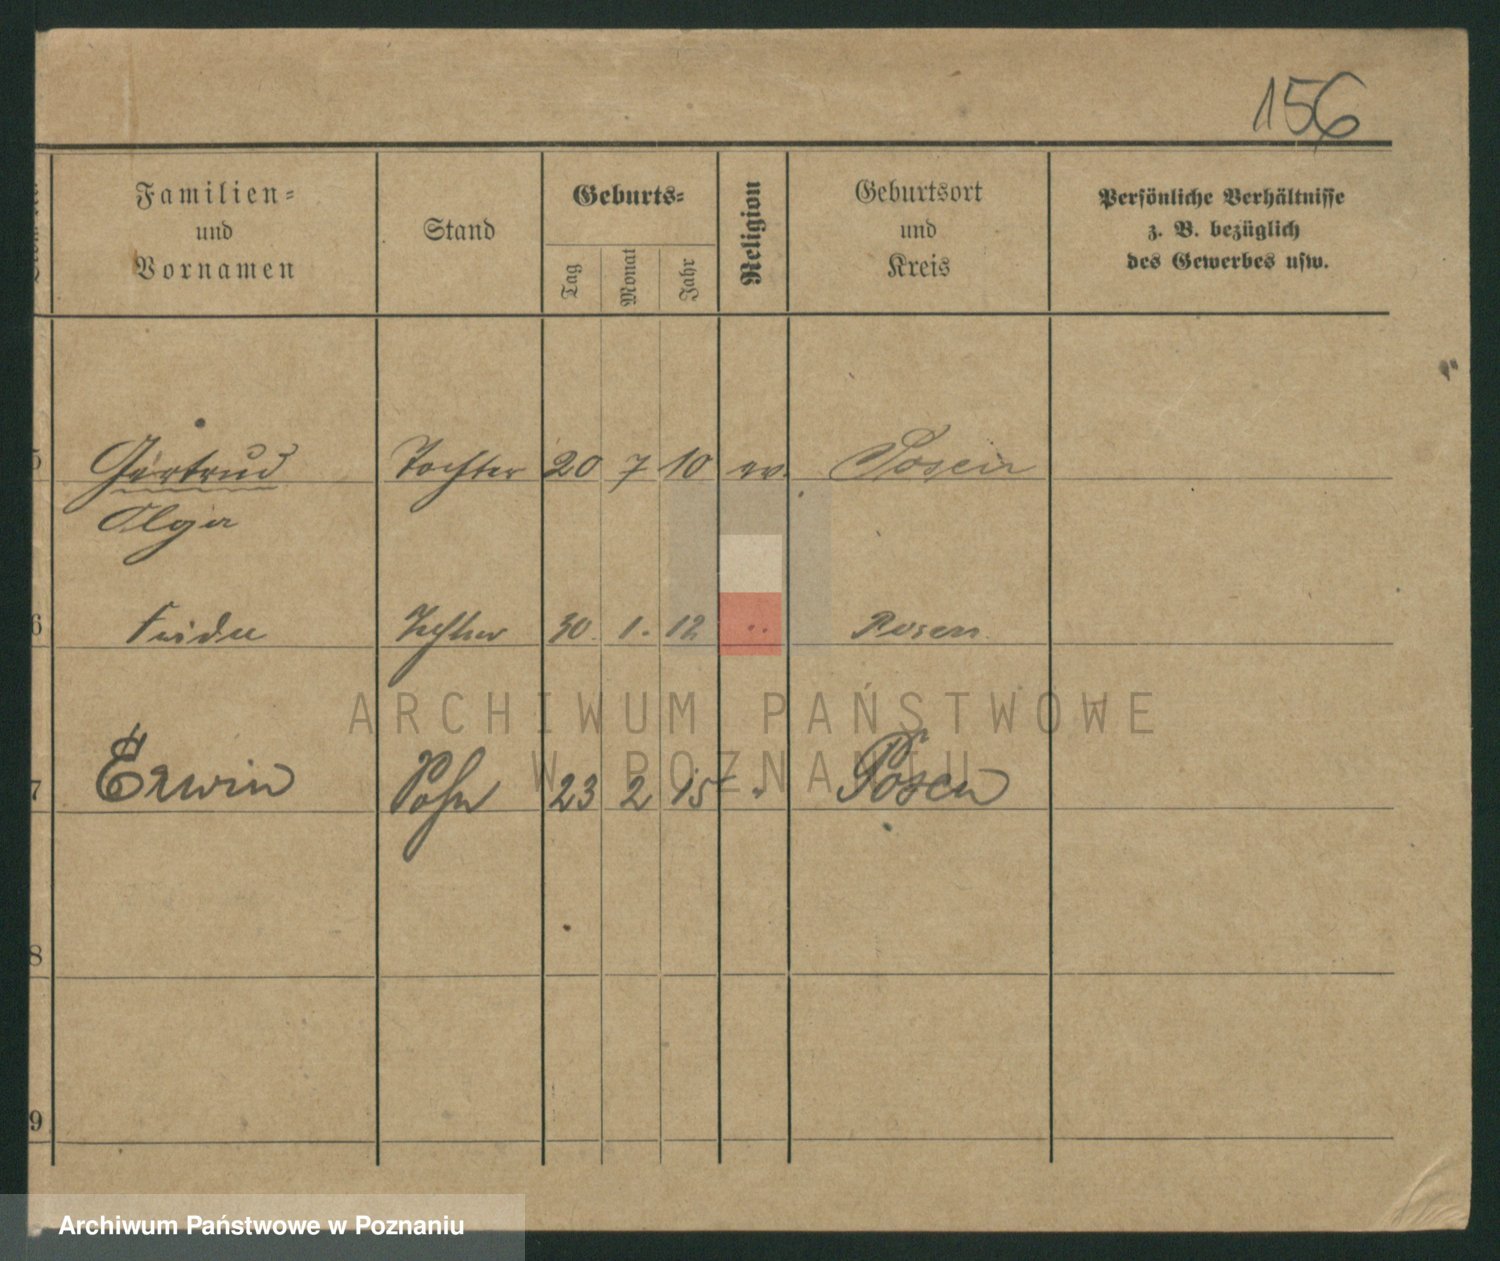 156
Familien=
und
Vornamen
Stand
Geburts=
Tag
Monat
Jahr
Religion
Geburtsort
und
Kreis
Persönliche Verhältnisse
z. B. bezüglich
des Gewerbes usw.
5 Gertrud Tochter 20 7 10 ev. Posen
Olga
6 Frieda Tochter 30. 1. 12 " Posen
7 Erwin Sohn 23 2 15 " Posen
8
9
ARCHIWUM PAŃSTWOWE
W POZNANIU
Archiwum Państwowe w Poznaniu